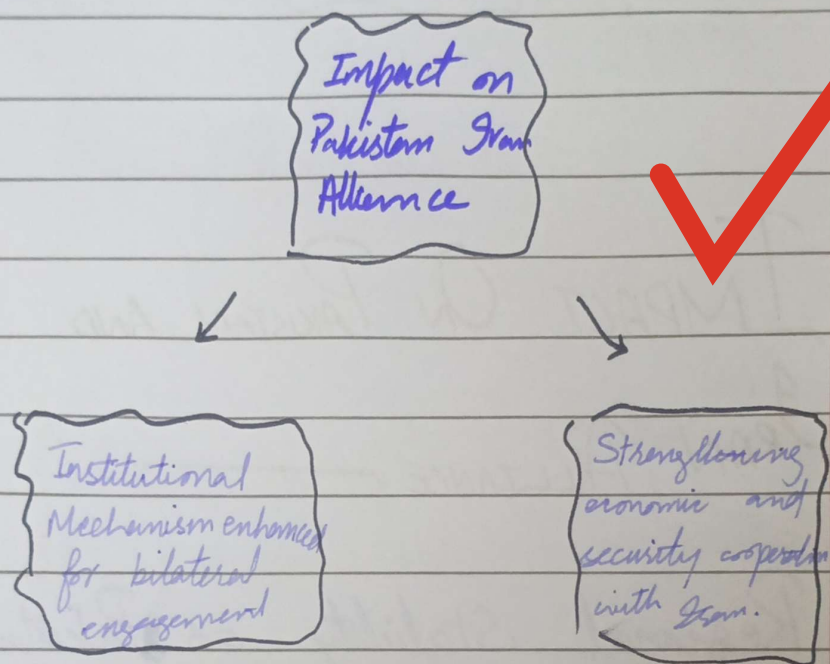 Impact on
Pakistan Iran
Allience
Institutional
Mechanism enhanced
for bilateral
engagement
Strengthening
economic and
security cooperation
with Iran.